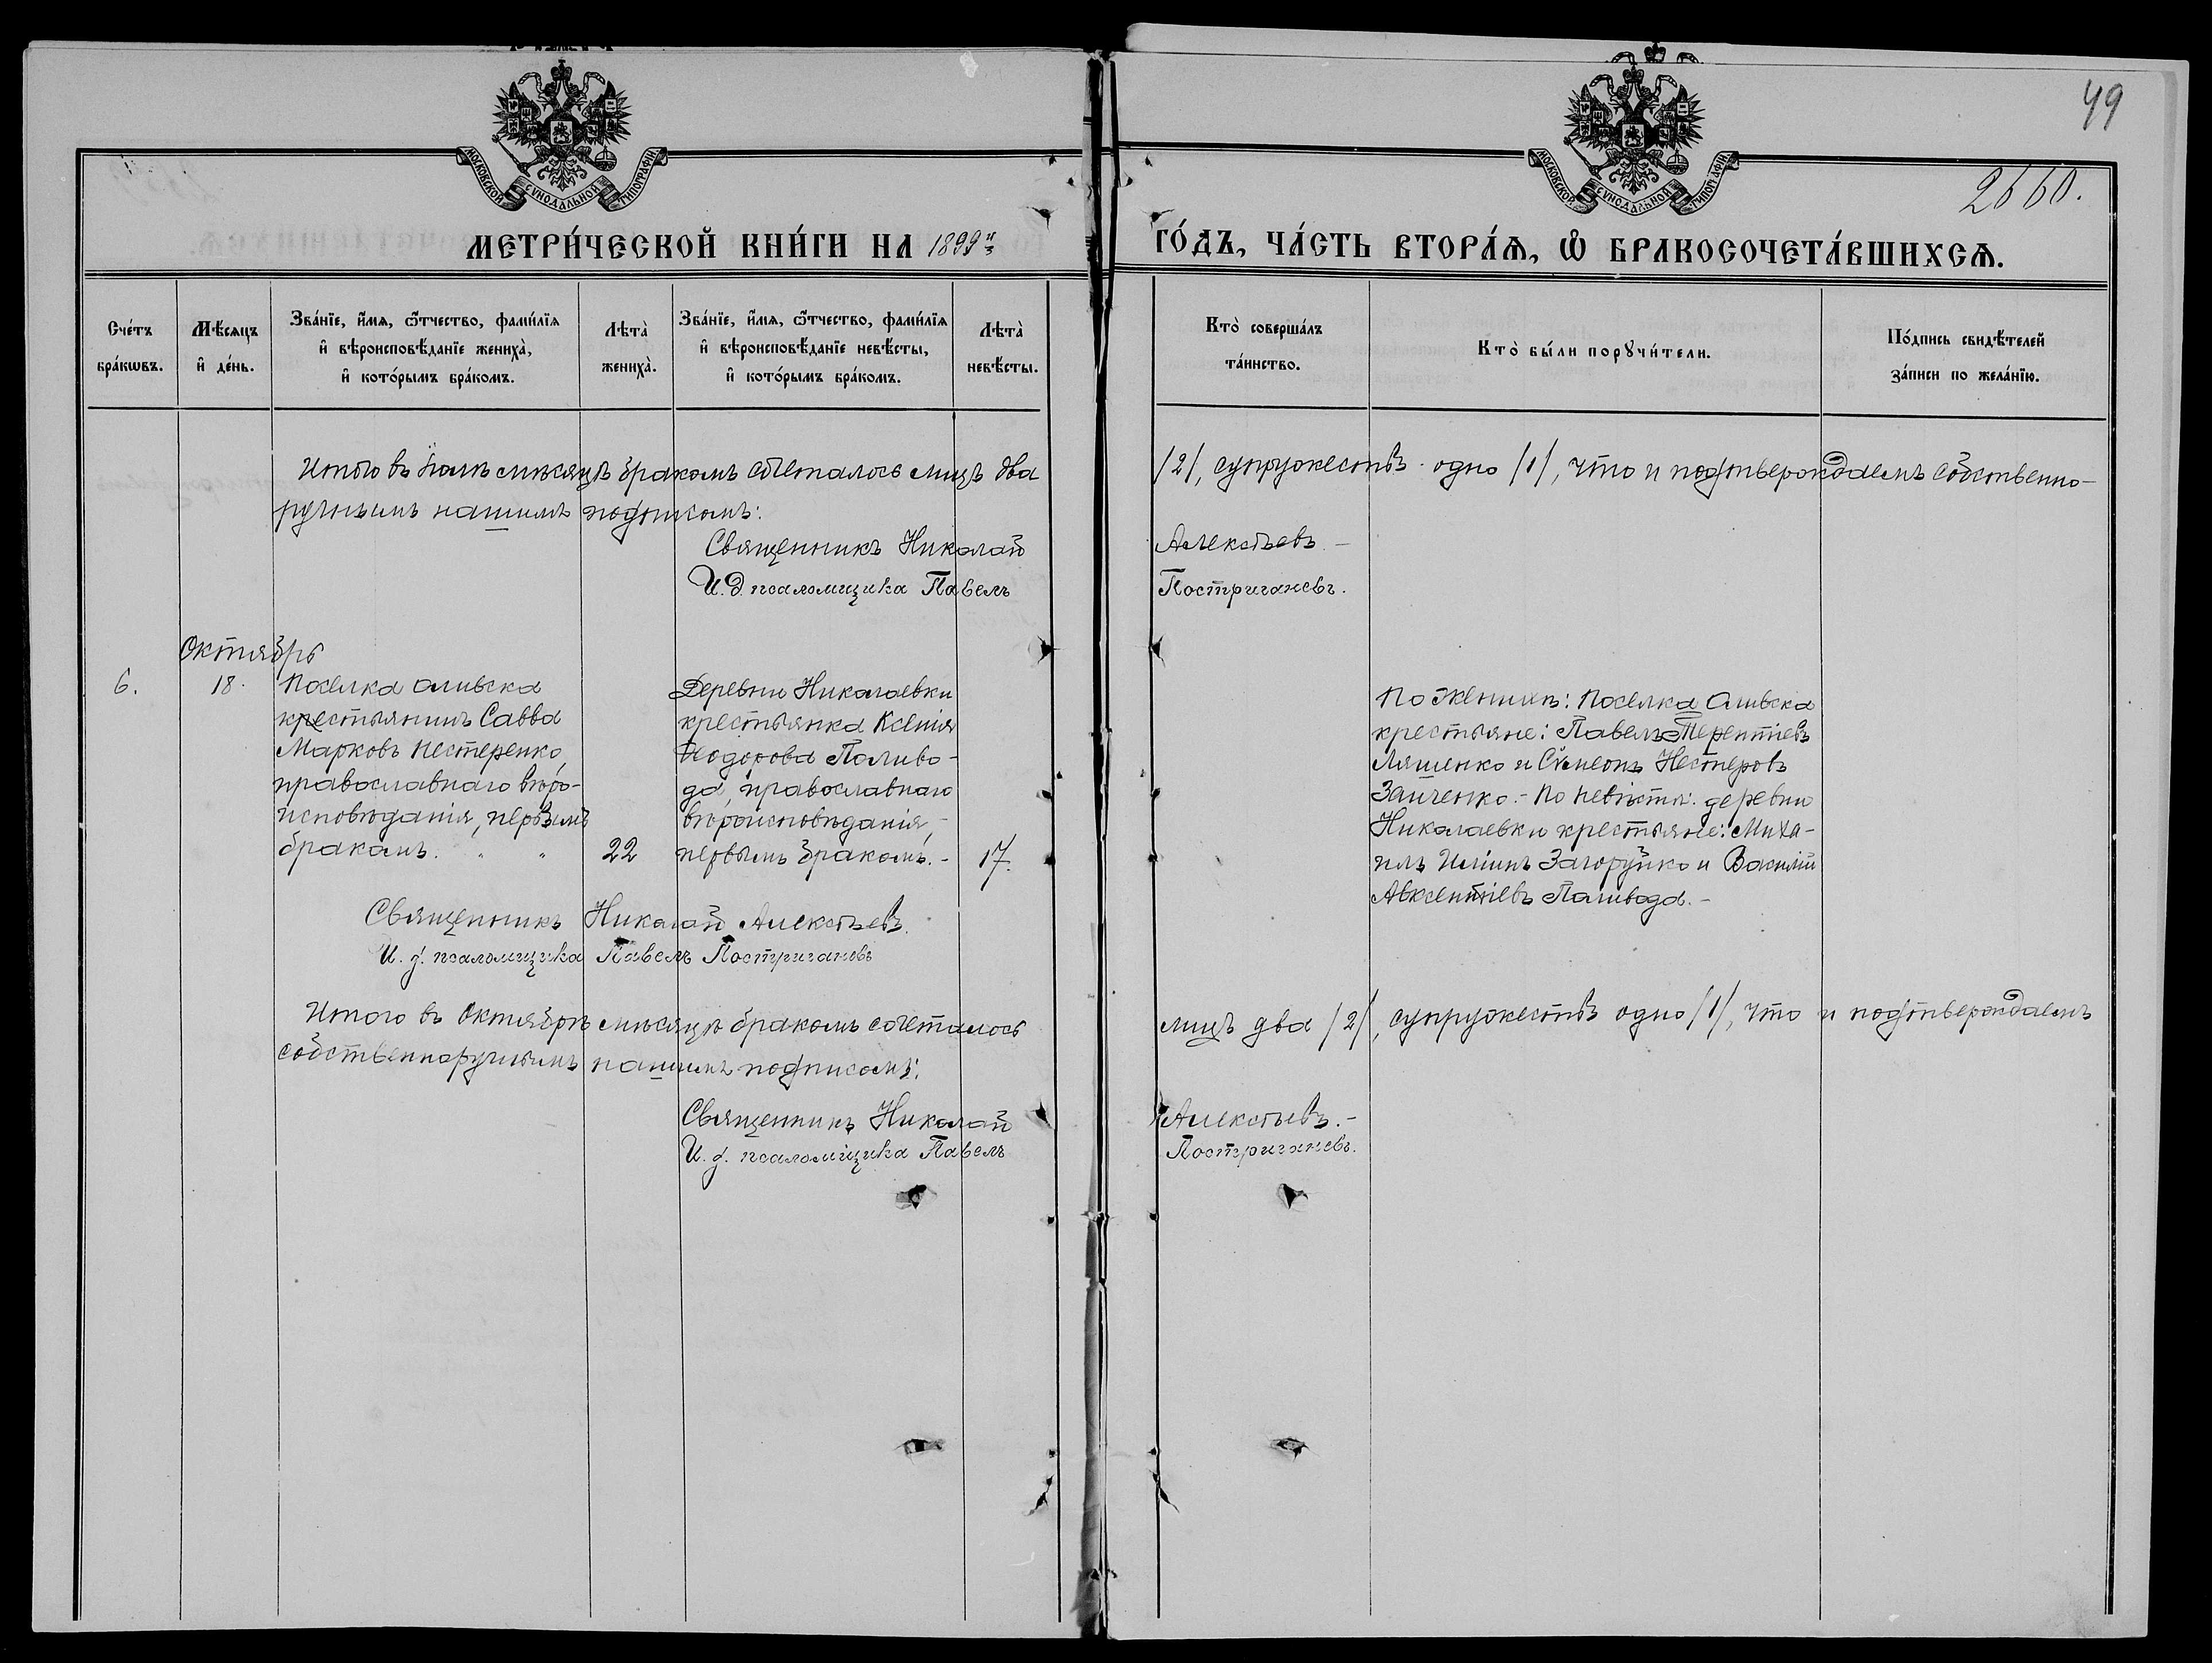 49
2660.
МОСКОВСКОЙ СѴНОДАЛЬНОЙ ТИПОГРАФІИ
МОСКОВСКОЙ СѴНОДАЛЬНОЙ ТИПОГРАФІИ
МЕТРИ́ЧЕСКОЙ КНИ́ГИ НА 1899й ГО́ДЪ, ЧА́СТЬ ВТОРА́Ѧ, Ѽ БРАКОСОЧЕТА́ВШИХСѦ.
Сче́тъ
бра́кωвъ.
Мѣ́сяцъ
и҆ де́нь.
Зва́нїе, и҆́мя, ѻ҆́тчество, фами́лїя
и҆ вѣроисповѣ́данїе жениха̀,
и҆ кото́рымъ бра́комъ.
Лѣта̀
жениха̀.
Зва́нїе, и҆́мя, ѻ҆́тчество, фами́лїя
и҆ вѣроисповѣ́данїе невѣ́сты,
и҆ кото́рымъ бра́комъ.
Лѣта̀
невѣ́сты.
Кто̀ соверша́лъ
та́инство.
Кто̀ бы́ли порꙋчи́тели.
По́дпись свидѣ́телей
за́писи по жела́нїю.
Итого въ мѣсяцѣ бракомъ сочеталось лицъ два /2/, супружествъ одно /1/, что и подтверждаемъ собственно-
ручнымъ нашимъ подписомъ:
Священникъ Николай Алексѣевъ. –
И. д. псаломщика Павелъ Постригачевъ.
Октябрь
6. 18.
Поселка Оливска
крестьянинъ Савва
Марковъ Нестеренко,
православнаго вѣро-
исповѣданія, первымъ
бракомъ. " " 22
Деревни Николаевки
крестьянка Ксенія
Ѳеодорова Паливо-
да, православнаго
вѣроисповѣданія,
первымъ бракомъ. – 17.
По женихѣ: поселка Оливска
крестьяне: Павелъ Терентіевъ
Ляшенко и Сѵмеонъ Несторовъ
Заиченко. – По невѣстѣ: деревни
Николаевки крестьяне: Миха-
илъ Иліинъ Загоруйко и Василій
Авксентіевъ Паливода. –
Священникъ Николай Алексѣевъ.
И. д. псаломщика Павелъ Постригачевъ
Итого въ Октябрѣ мѣсяцѣ бракомъ сочеталось лицъ два /2/, супружествъ одно /1/, что и подтверждаемъ
собственноручнымъ нашимъ подписомъ:
Священникъ Николай Алексѣевъ. –
И. д. псаломщика Павелъ Постригачевъ.